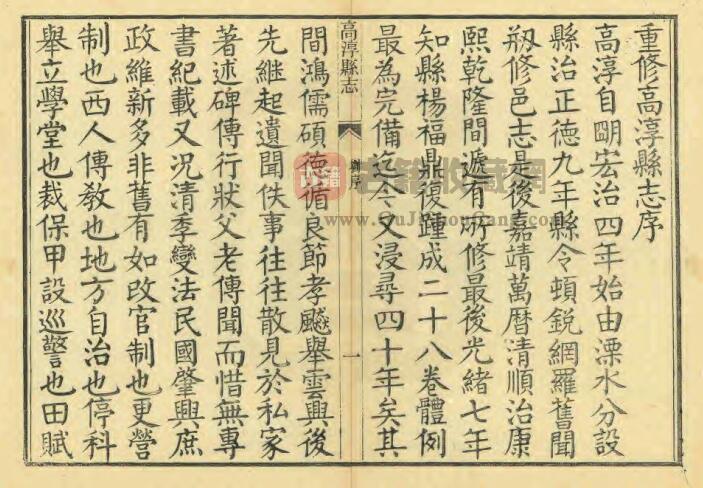 重修高淳縣志序
高淳自明宏治四年始由溧水分設
縣治正德九年縣令頓銳網羅舊聞
刱修邑志是後嘉靖萬曆清順治康
熙乾隆間遞有所修最後光緒七年
知縣楊福鼎復踵成二十八卷體例
最為完備迄今又浸尋四十年矣其
高淳縣志
序
一
間鴻儒碩德循良節孝飈舉雲興後
先繼起遺聞佚事往往散見於私家
著述碑傳行狀父老傳聞而惜無專
書紀載又況清季變法民國肇興庶
政維新多非舊有如改官制也更營
制也西人傳教也地方自治也停科
舉立學堂也裁保甲設巡警也田賦
古籍收藏網
www.GuJiShouCang.com